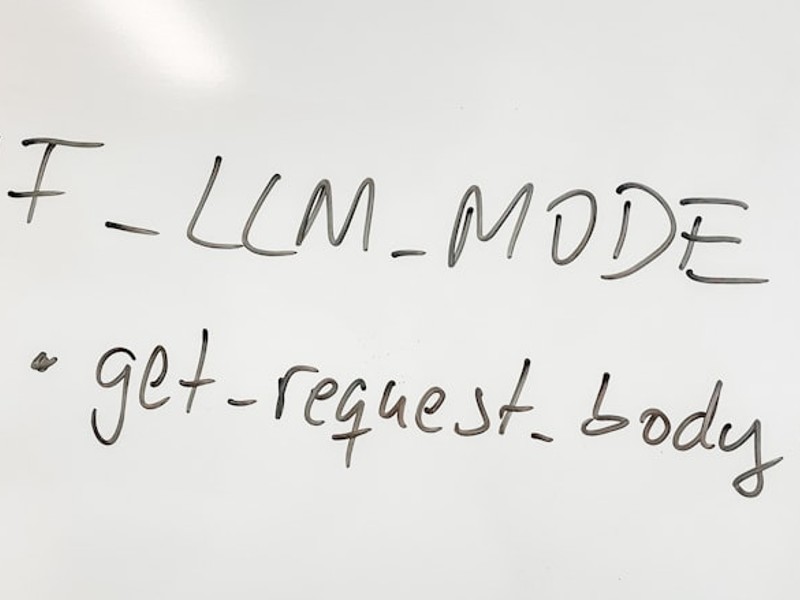 F_LLM_MODE
• get_request_body